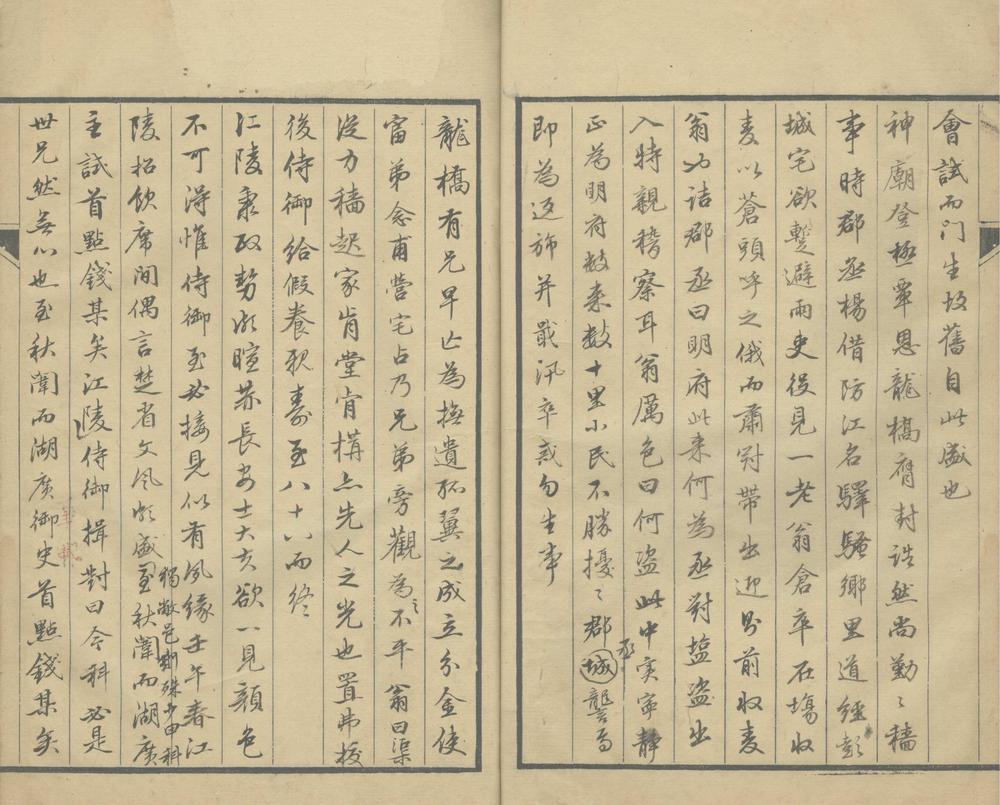 會試而門生故舊自此盛也
神廟登極覃恩龍橋膺封誥然尚勤〻穡
事時郡丞楊借防江名驛騷鄉里道經彭
城宅欲蹔避雨史役見一老翁倉卒在塲收
麦以蒼頭呼之俄而肅冠帶出迎則前收麦
翁也詰郡丞曰明府此来何為丞對塩盜出
入特親稽察耳翁厲色曰何盜此中実寧靜
正為明府数来数十里小民不勝擾〻郡城丞
即為返旆并戢汛卒戒勿生事
龍橋有兄早亡為撫遺孤翼之成立分金使
富弟念甫營宅占乃兄弟旁觀為〻不平翁曰渠
從力穡起家肯堂肯構亦先人之光也置弗較
後侍御給假養親壽至八十八而終
江陵秉政勢炎暄赫長安士大夫欲一見顏色
不可得惟侍御至必接見似有夙緣壬午春江
陵招飲席間偶言楚省文風頗盛至秋闈而湖廣
獨敝邑鄉殊少由科
主試首點錢某矣江陵侍御揖對曰今科必是
世兄然無心也至秋闈而湖廣御史首點錢某矣